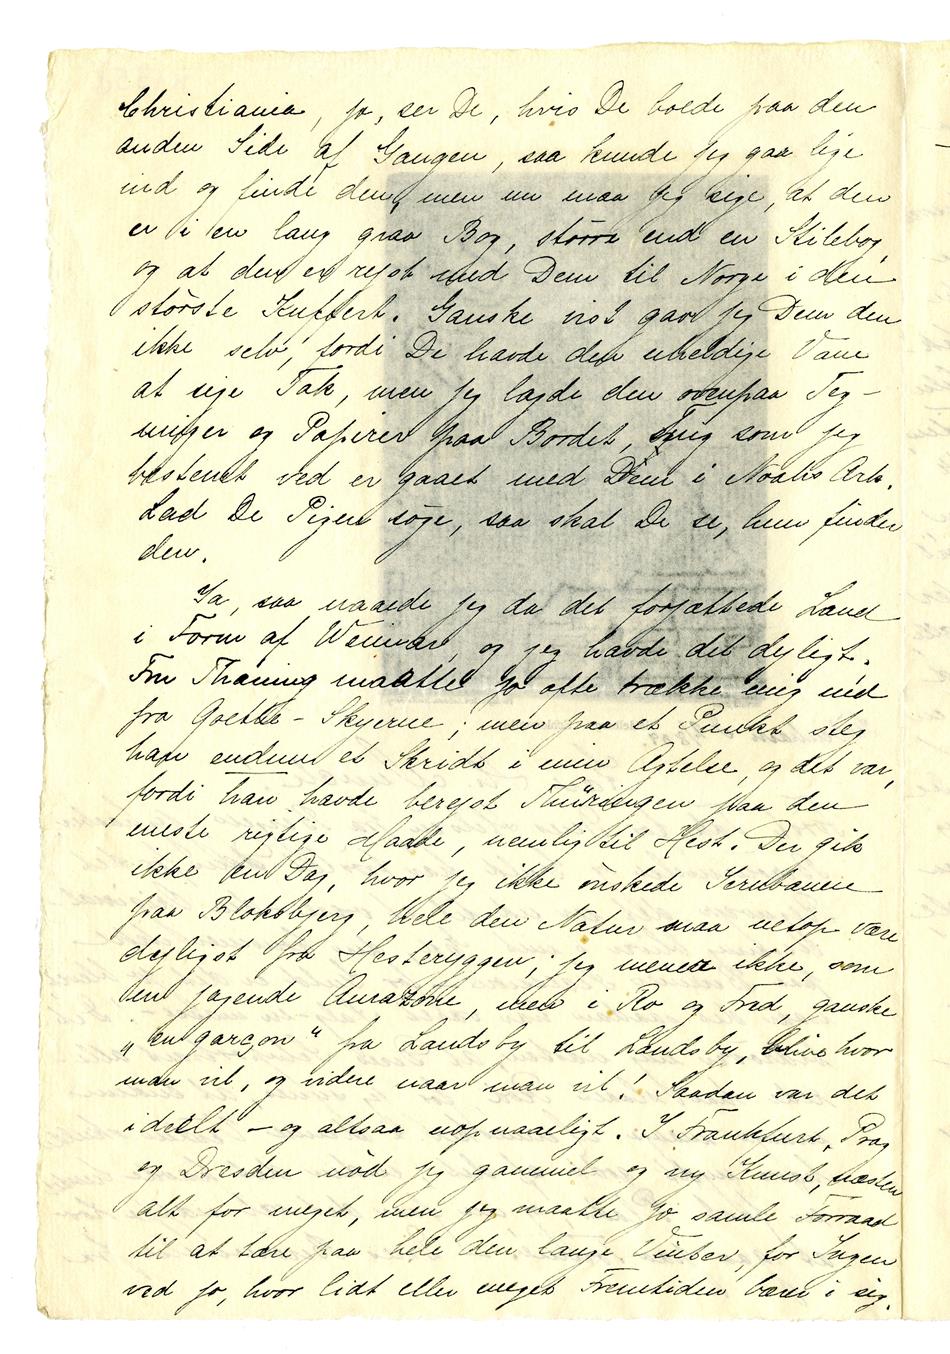 Christiania, jo, ser De, hvis De boede paa den
anden Side af Gangen, saa kunde jeg gaa lige
ind og finde den, men nu maa jeg sige, at den
er i en lang graa Bog, större end en Stilebog,
og at den er rejst med Dem til Norge i den
störste Kuffert. Ganske vist gav jeg Dem den
ikke selv, fordi De havde den uheldige Vane
at sige Tak, men jeg lagde den ovenpaa Teg-
ninger og Papirer paa Bordet, som jeg
bestemt ved er gaaet med Dem i Noahs Ark.
Lad De Pigen söge, saa skal De se, hun finder
den.
Ja, saa naaede jeg da det forjættede Land
i Form af Weimar, og jeg havde det dejligt.
Fru Thaning maatte jo ofte trække mig ned
fra Goethe-Skyerne; men paa et Punkt steg
han endnu et Skridt i min Agtelse, og det var,
fordi han havde berejst Thüringen paa den
eneste rigtige Maade, nemlig til Hest. Der gik
ikke en Dag, hvor jeg ikke önskede Jernbanen
paa Bloksbjerg, hele den Natur maa netop være
dejligst fra Hesteryggen; jeg mener ikke, som
en jagende Amazone, men i Ro og Fred, ganske
„en garçon“ fra Landsby til Landsby, blive hvor
man vil, og videre naar man vil! Saadan var det
ideelt – og altsaa uopnaaeligt. I Frankfurt, Prag
og Dresden nöd jeg gammel og ny Kunst, næsten
alt for meget, men jeg maatte jo samle Forraad
til at tære paa hele den lange Vinter, for Ingen
ved jo, hvor lidt eller meget Fremtiden bærer i sig.